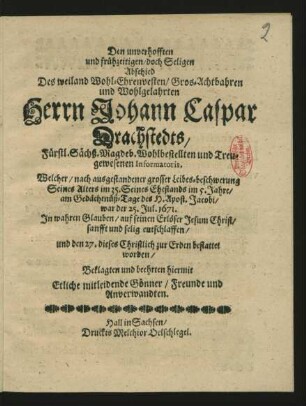 2
Den unverhofften
und frühzeitigen/doch Seligen
Abschied
Des weiland Wohl-Ehrenvesten/Gros-Achtbahren
und Wohlgelahrten
Herrn Johann Caspar
Drachstedts/
Fürstl. Sächß. Magdeb. Wohlbestellten und Treu-
gewesenen Informatoris.
Welcher/nach ausgestandener grosser Leibes-beschwerung
Seines Alters im 35. Seines Ehestands im 5. Jahre/
am Gedächtnüß-Tage des H. Apost. Jacobi/
war der 25. Jul. 1671.
In wahren Glauben/auf seinen Erlöser Jesum Christ/
sanfft und selig entschlaffen/
und den 27. dieses Christlich zur Erden bestattet
worden/
Beklagten und beehrten hiermit
Etliche mitleidende Gönner/Freunde und
Anverwandten.
Hall in Sachsen/
Druckts Melchior Oelschlegel.